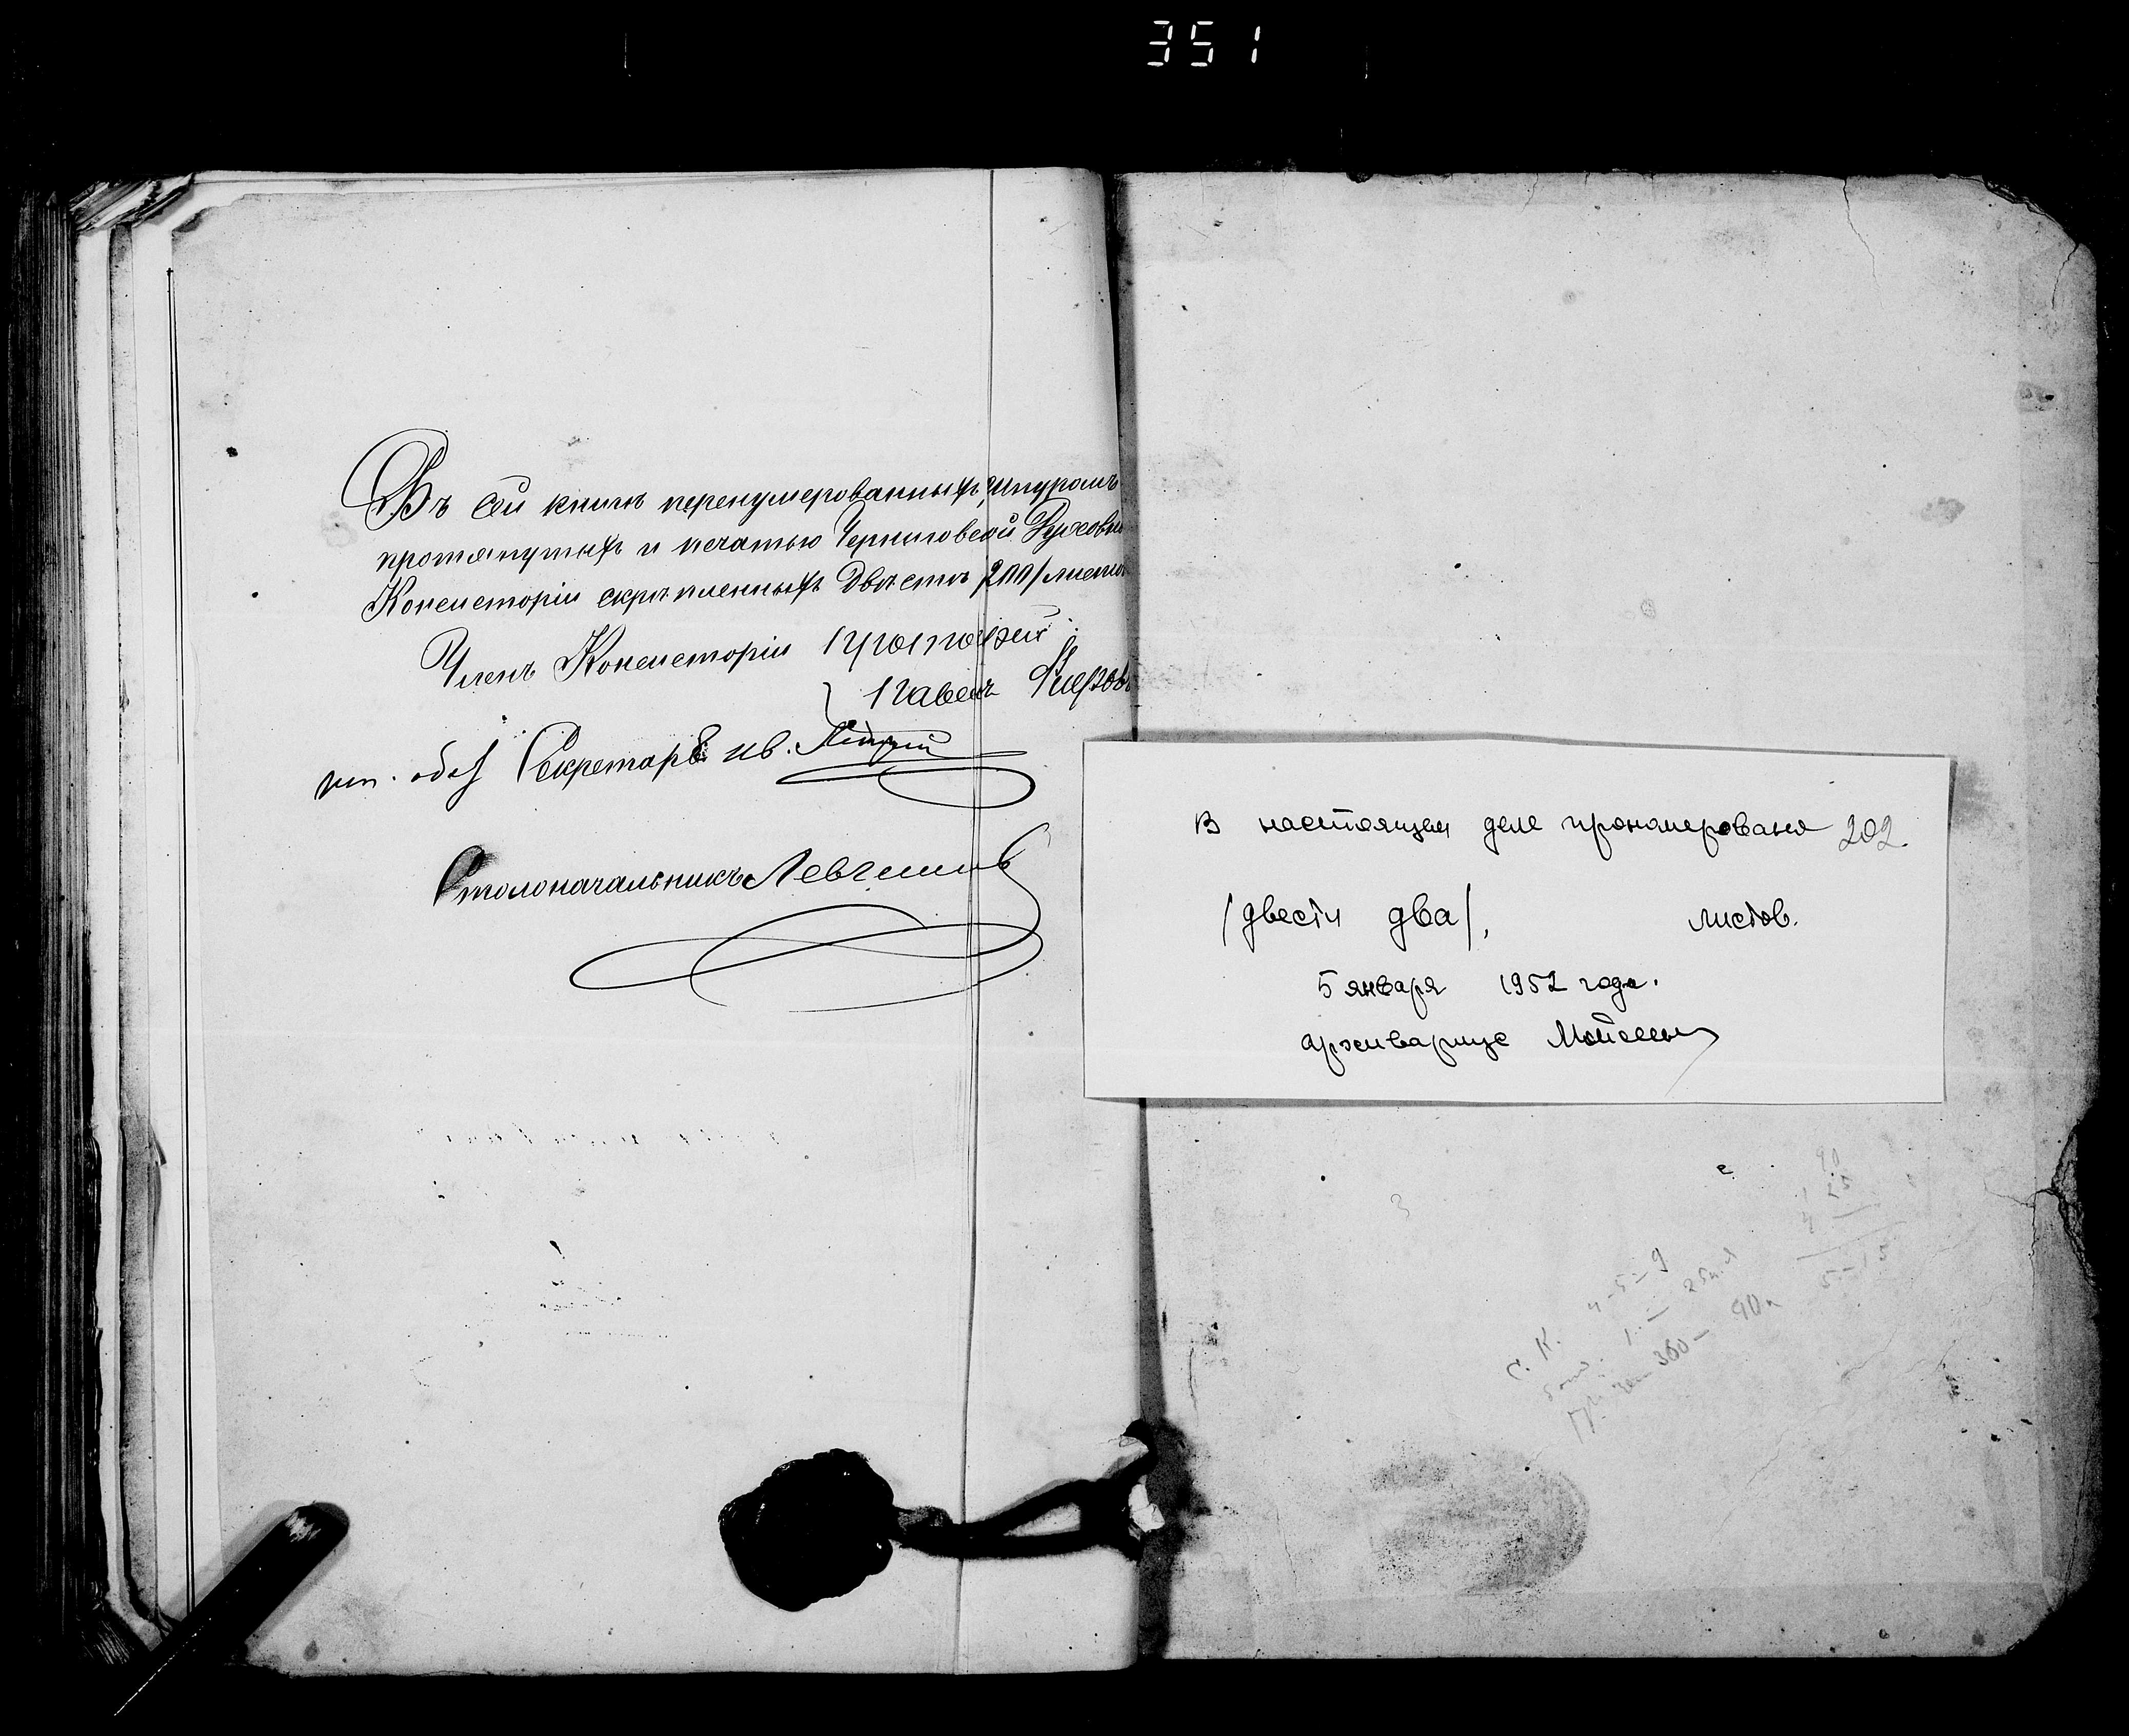 351
Въ сей книгѣ перенумерованныхъ, шнуромъ
протянутыхъ и печатью Черниговской Духовн
Консисторіи скрѣпленныхъ Двѣсти /200/ листо
Членъ Консисторіи Протоіерей
Павелъ
Секретарь
Столоначальникъ Левченко
В настоящем деле пронумеровано 202.
/двести два/, листов.
5 января 1952 года.
архивариус
С. К. 4-5-9
360- 90к
5-15